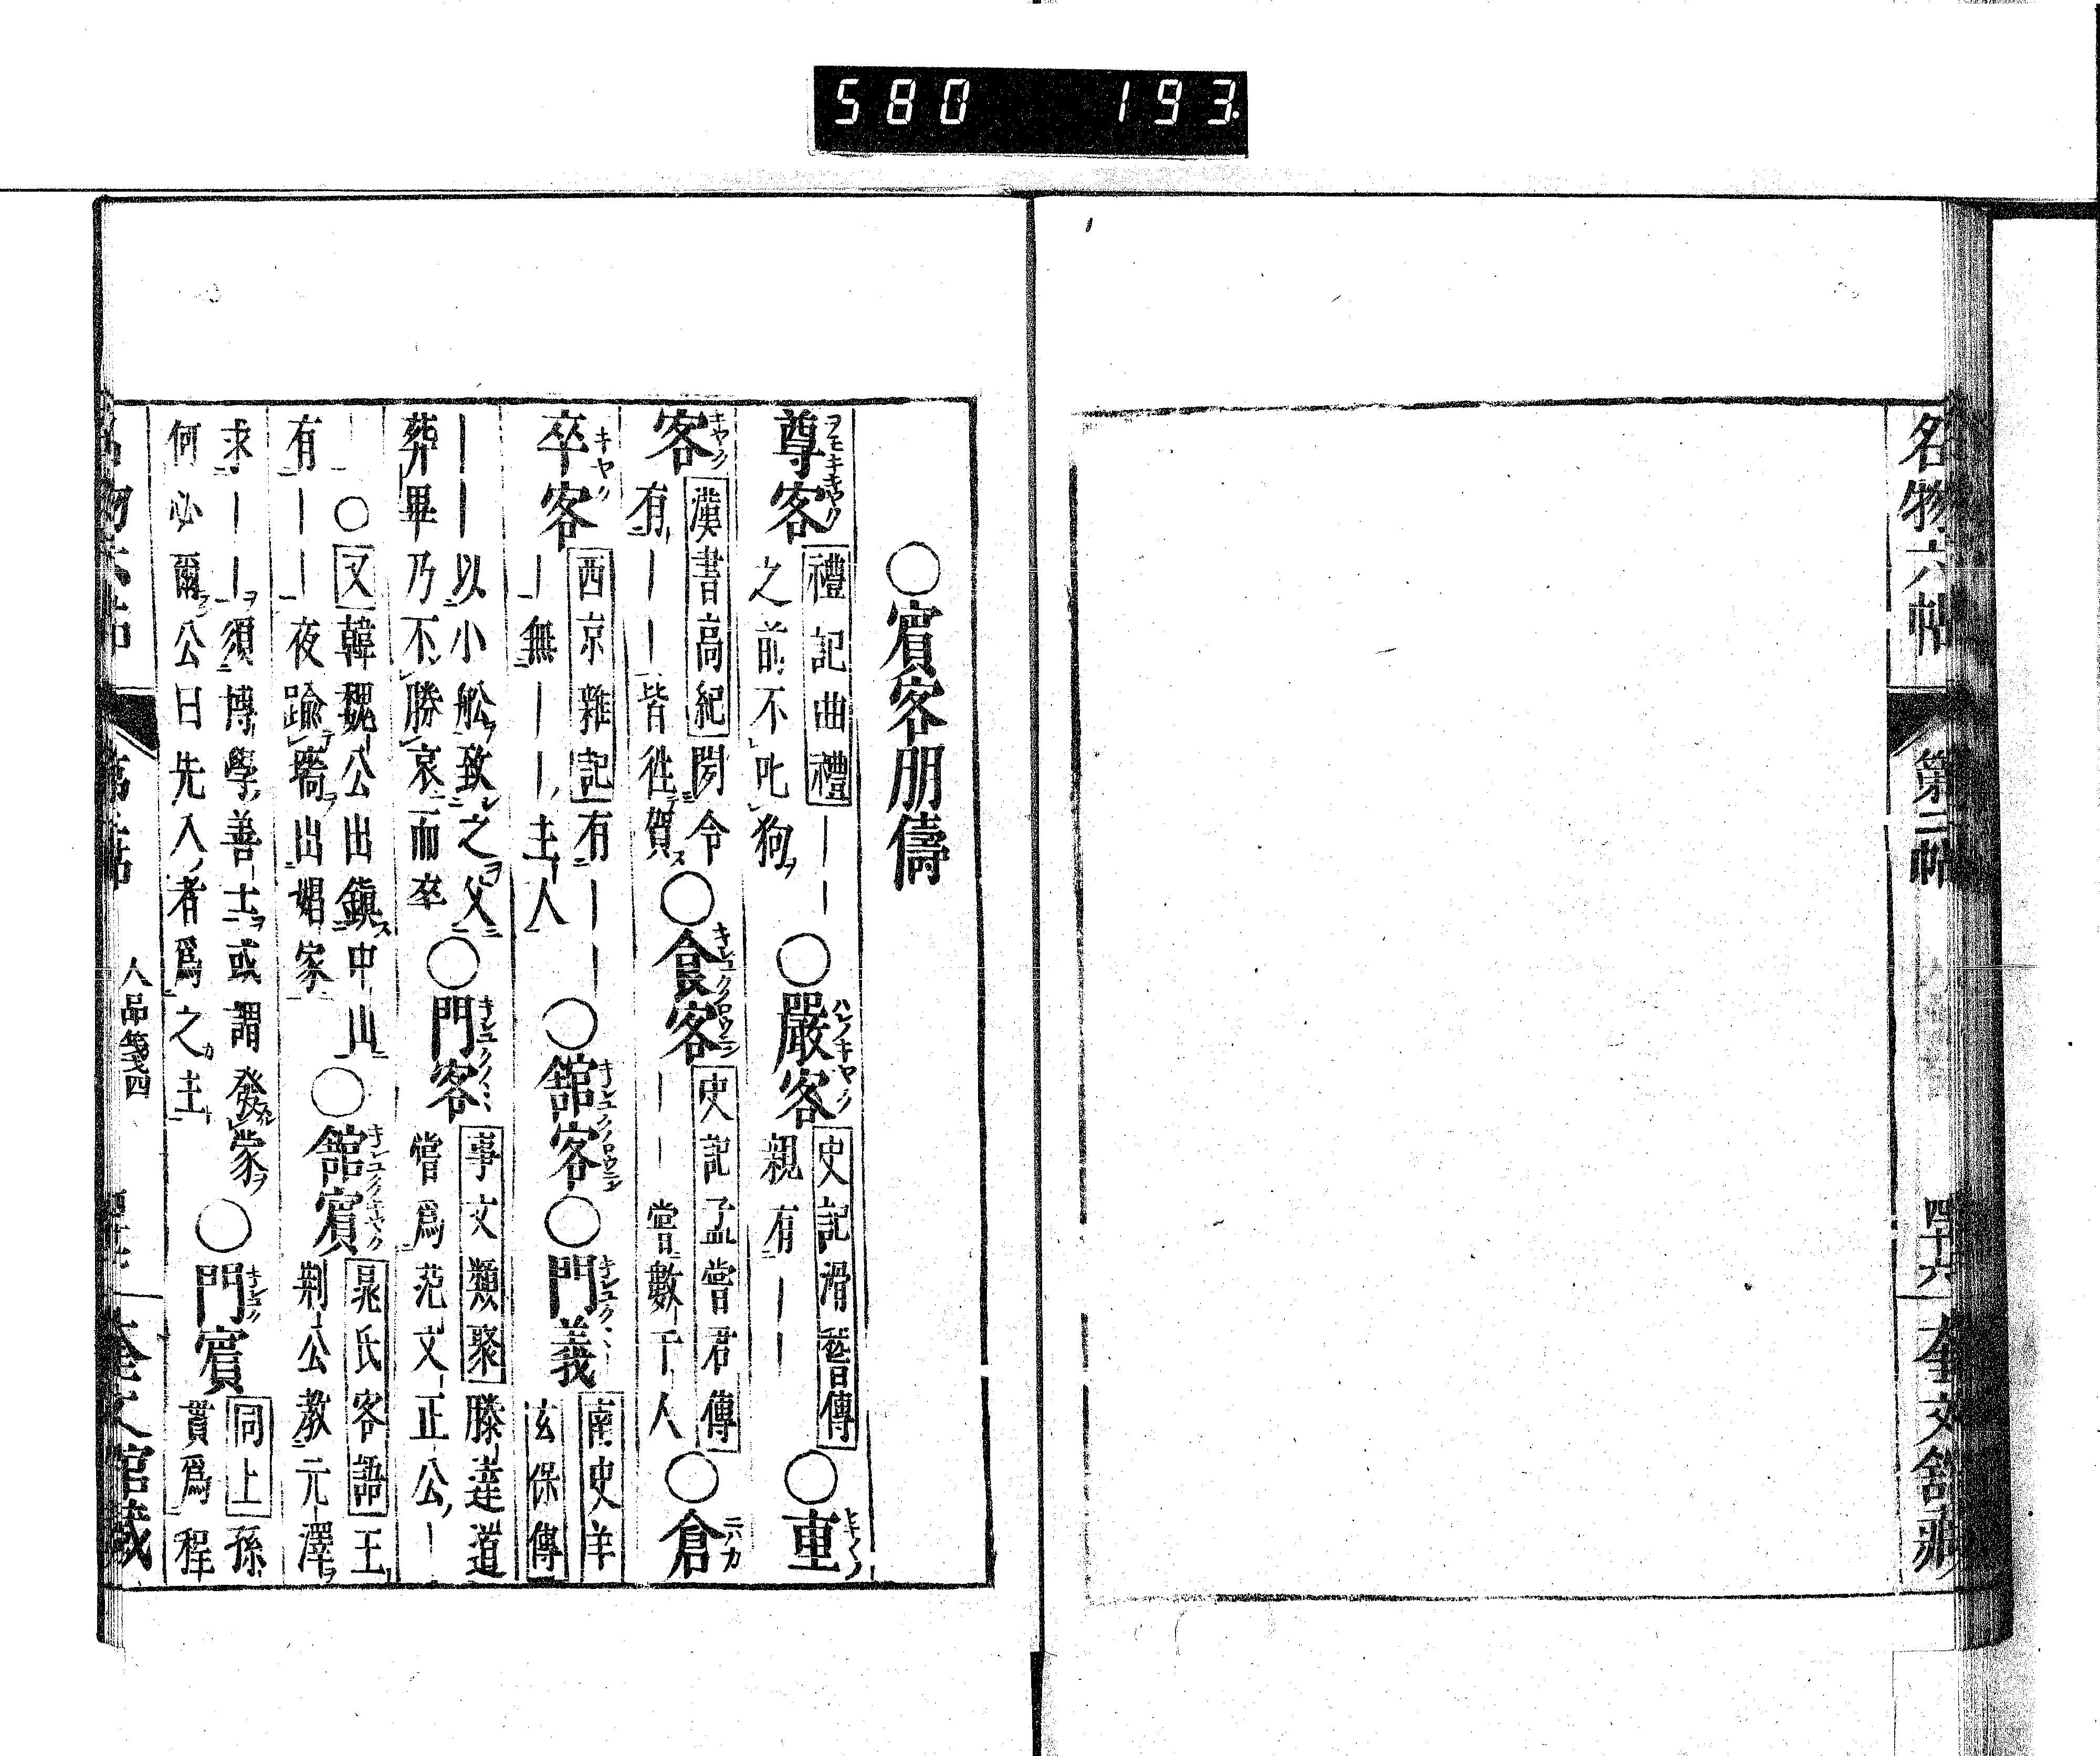 580 193.
名物六帖 第二帖 四十六 奎文舘藏
○賓客朋儔
尊客 禮記曲禮――之前不叱狗 ○嚴客 史記滑稽傳親有―― ○重
客 漢書高紀聞令有――皆徃賀 ○食客 史記孟嘗君傳――嘗數千人 ○倉
卒客 西京雜記有―――無――主人 ○舘客 ○門義 南史羊玄保傳
――以小舩致之父葬畢乃不勝哀而卒 ○門客 事文類聚滕達道嘗爲范文正公―
―○又韓魏公出鎭中山有――夜踰墻出娼家 ○舘賓 晁氏客語王荆公教元澤
求――須博學善士或謂發蒙何必爾公曰先入者爲之主 ○門賓 同上孫賁爲程
人品箋四